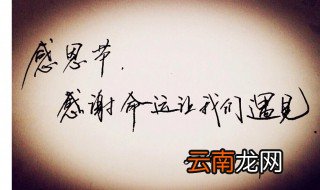 感恩节.
感谢命运让我们遇见
云南龙网